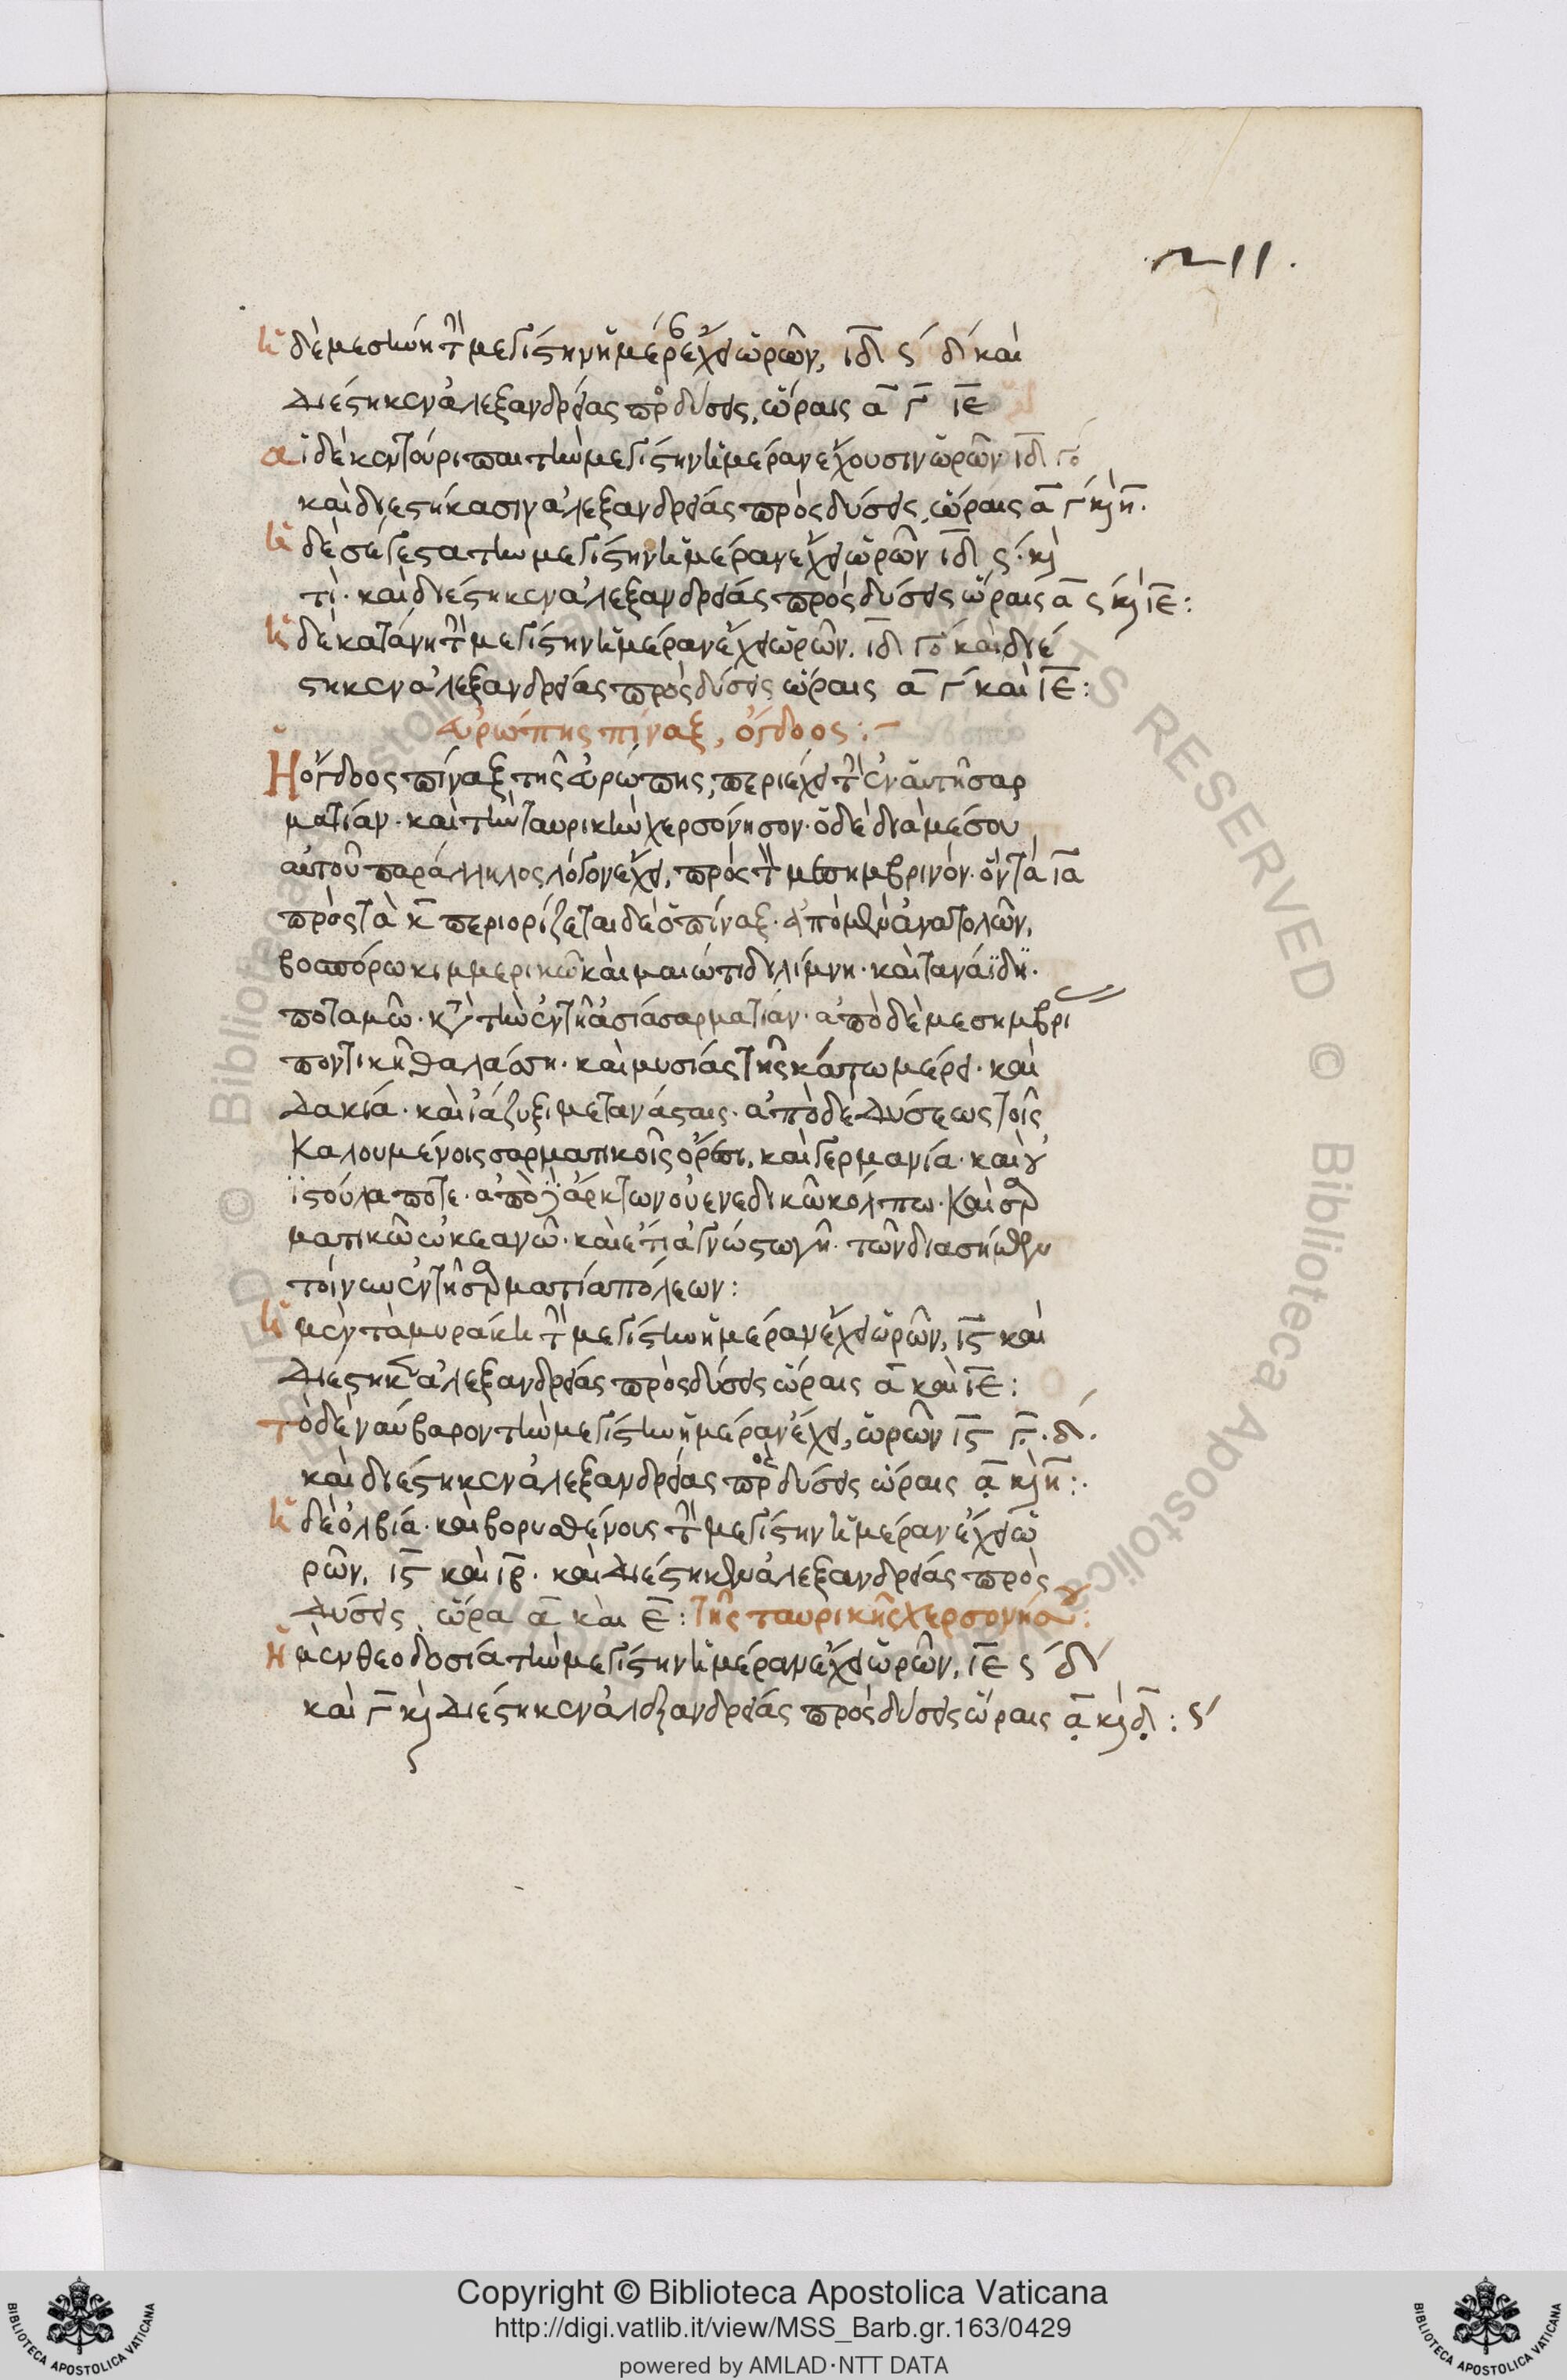 211.
ἡ δὲ μεσήνη τὴν μεγίστην ἡμέραν ἔχει ὡρῶν, ιδ ς δ καὶ
διέστηκεν ἀλεξανδρείας πρὸς δύσεις, ὥραις α γ ιε
αἱ δὲ κεντούριπαι τὴν μεγίστην ἡμέραν ἔχουσιν ὡρῶν ιδ γο
καὶ διεστήκασιν ἀλεξανδρείας πρὸς δύσεις, ὥραις α γ καὶ η.
ἡ δὲ σέγεστα τὴν μεγίστην ἡμέραν ἔχει ὡρῶν ιδ ς. καὶ
καὶ διέστηκεν ἀλεξανδρείας πρὸς δύσεις ὥραις α ς καὶ ιε:
ἡ δὲ κατάνη τὴν μεγίστην ἡμέραν ἔχει ὡρῶν. ιδ γο καὶ διέ
στηκεν ἀλεξανδρείας πρὸς δύσεις ὥραις α γ καὶ ιε:
εὐρώπης πίναξ, ὄγδοος:-
Ὁ ὄγδοος πίναξ τῆς εὐρώπης, περιέχει τὴν ἐν αὐτῇ σαρ
ματίαν. καὶ τὴν ταυρικὴν χερσόνησον. ὁ δὲ διὰ μέσου
αὐτοῦ παράλληλος λόγον ἔχει, πρὸς τὸν μεσημβρινόν. ὃν τὰ ια
πρὸς τὰ κ περιορίζεται δὲ ὁ πίναξ. ἀπὸ μὲν ἀνατολῶν,
βοσπόρω κιμμερικῶ καὶ μαιώτιδι λίμνη. καὶ τανάϊδι.
ποταμῶ. κατὰ τὴν ἐν τῆ ἀσία σαρματίαν. ἀπὸ δὲ μεσημβρί
ποντικῆ θαλάσση. καὶ μυσίας τῆς κάτω μέρει. καὶ
Δακία. καὶ ἰάζυξι μετανάσταις. ἀπὸ δὲ Δύσεως τοῖς
Καλουμένοις σαρματικοῖς ὄρεσι, καὶ γερμανία. καὶ
ϊστούλα ποτε. ἀπὸ δὲ ἄρκτων οὐενεδικῶ κόλπω. Καὶ σαρ
ματικῶ ὠκεανῶ. καὶ ἔτι ἀγνώστω γῆ. τῶν διασήμων
τοίνυν ἐν τῆ σαρματία πόλεων:
ἡ μὲν ταμυράκη τὴν μεγίστην ἡμέραν ἔχει ὡρῶν, ις καὶ
Διέστηκεν ἀλεξανδρείας πρὸς δύσεις ὥραις α καὶ ιε:
τὸ δὲ ναύβαρον τὴν μεγίστην ἡμέραν ἔχει, ὡρῶν ις γ. δ.
καὶ διέστηκεν ἀλεξανδρείας πρὸς δύσεις ὥραις α καὶ η:.
ἡ δὲ ὀλβία. καὶ βορυσθένους τὴν μεγίστην ἡμέραν ἔχει ὡ
ρῶν, ις καὶ ιβ. καὶ Διέστηκεν ἀλεξανδρείας πρὸς
Δύσεις, ὥρα α καὶ ε: τῆς ταυρικῆς χερσονήσου:
ἡ μὲν θεοδοσία τὴν μεγίστην ἡμέραν ἔχει ὡρῶν, ιε ς δ
καὶ γ καὶ Διέστηκεν ἀλεξανδρείας πρὸς δύσεις ὥραις α καὶ δ: ς
© Biblioteca Apostolica Vaticana
RIGHTS RESERVED © Biblioteca Apostolica
Copyright © Biblioteca Apostolica Vaticana
http://digi.vatlib.it/view/MSS_Barb.gr.163/0429
powered by AMLAD·NTT DATA
BIBLIOTECA APOSTOLICA VATICANA
BIBLIOTECA APOSTOLICA VATICANA